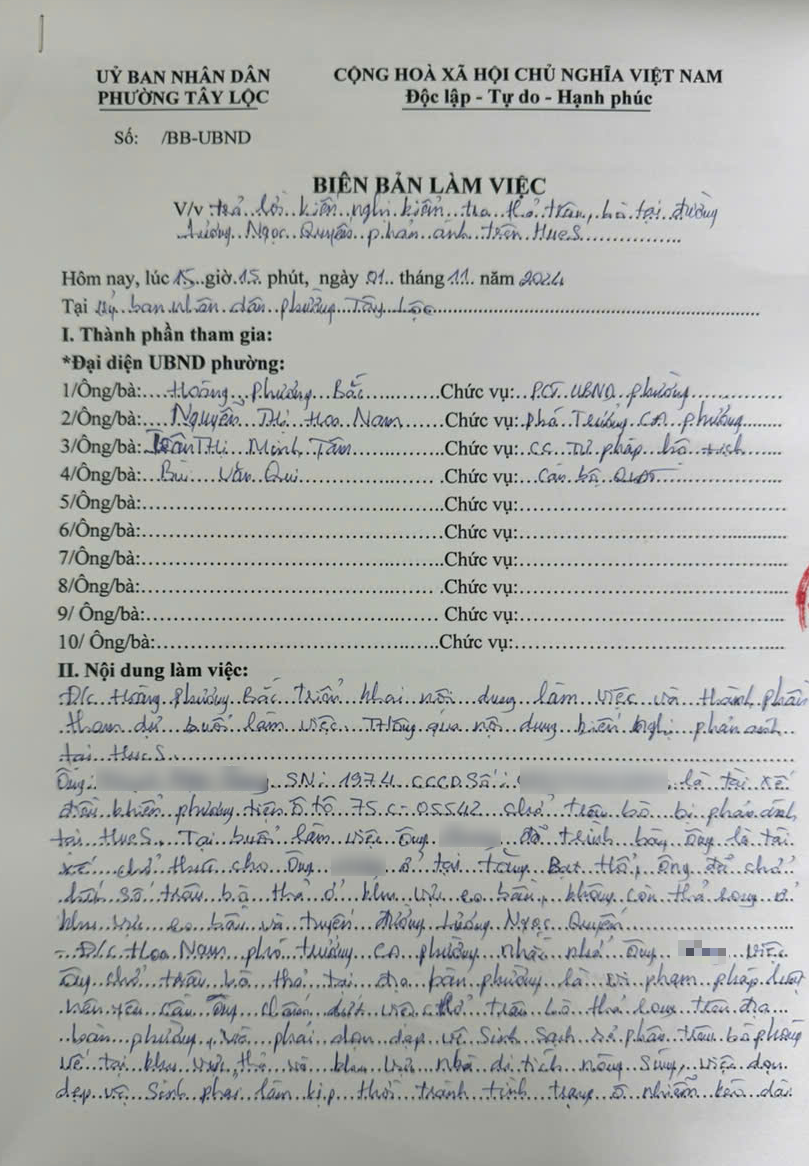 UỶ BAN NHÂN DÂN
PHƯỜNG TÂY LỘC
CỘNG HOÀ XÃ HỘI CHỦ NGHĨA VIỆT NAM
Độc lập - Tự do - Hạnh phúc
Số: /BB-UBND
BIÊN BẢN LÀM VIỆC
V/v trả lời kiến nghị kiểm tra thả trâu, bò tại đường
Lương Ngọc Quyến phản ánh trên HueS
Hôm nay, lúc 15 giờ 15 phút, ngày 01 tháng 11 năm 2024
Tại Uỷ ban nhân dân phường Tây Lộc
I. Thành phần tham gia:
*Đại diện UBND phường:
1/Ông/bà: Hoàng Phương Bắc Chức vụ: PCT. UBND phường
2/Ông/bà: Nguyễn Thị Hoa Nam Chức vụ: Phó Trưởng CA phường
3/Ông/bà: Trần Thị Minh Tâm Chức vụ: CC Tư pháp hộ tịch
4/Ông/bà: Bùi Văn Qui Chức vụ: Cán bộ QLĐT
5/Ông/bà: Chức vụ:
6/Ông/bà: Chức vụ:
7/Ông/bà: Chức vụ:
8/Ông/bà: Chức vụ:
9/ Ông/bà: Chức vụ:
10/ Ông/bà: Chức vụ:
II. Nội dung làm việc:
Đ/c Hoàng Phương Bắc triển khai nội dung làm việc và thành phần
tham dự buổi làm việc. Thông qua nội dung kiến nghị phản ánh
tại HueS.
Ông SN: 1974 CCCD Số: là tài xế
điều khiển phương tiện ô tô 75C-05542 chở trâu bò bị phản ánh
tại HueS. Tại buổi làm việc ông đã trình bày ông là tài
xế chở thuê cho ông ở tại ông đã chở
hết số trâu bò thả ở khu vực eo bầu, không còn thả rong ở
khu vực eo bầu và tuyến đường Lương Ngọc Quyến
- Đ/c Hoa Nam phó trưởng CA phường nhắc nhở ông việc
ông chở trâu bò thả tại địa bàn phường là vi phạm pháp luật
nên yêu cầu ông chấm dứt việc thả trâu bò thả rong trên địa
bàn phường, và phải dọn dẹp vệ sinh sạch sẽ phân trâu bò phóng
uế tại khu vực thả và khu vực nhà di tích việc dọn
dẹp vệ sinh phải làm kịp thời tránh tình trạng ô nhiễm kéo dài